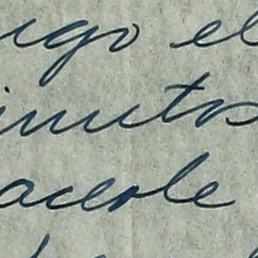 igo el
inutos
acerle